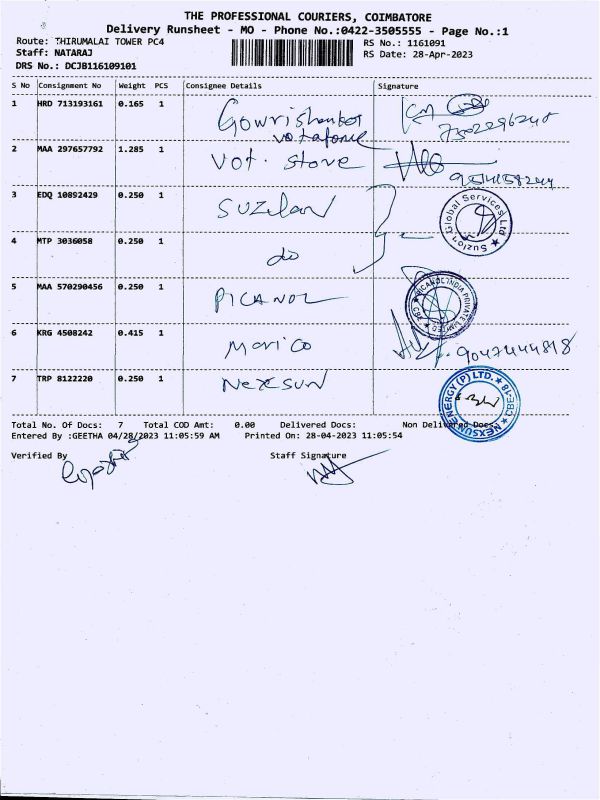 THE PROFESSIONAL COURIERS, COIMBATORE
Delivery Runsheet - MO - Phone No.:0422-3505555 - Page No.:1
Route: THIRUMALAI TOWER PC4
Staff: NATARAJ
DRS No.: DCJB116109101
RS No.: 1161091
RS Date: 28-Apr-2023
S No Consignment No Weight PCS Consignee Details Signature
1 HRD 713193161 0.165 1 Gowrishankar
votafone
2 MAA 297657792 1.285 1 Vot. Store
3 EDQ 10892429 0.250 1 SUZILON
Suzlon Global Services Ltd
4 MTP 3036058 0.250 1 do
5 MAA 570290456 0.250 1 PICANOL
PICANOL INDIA PRIVATE LIMITED CBE
6 KRG 4508242 0.415 1 Marico 9047444818
7 TRP 8122220 0.250 1 NEXSUN
NEXSUN ENERGY (P) LTD. CBE-18
Total No. Of Docs: 7 Total COD Amt: 0.00 Delivered Docs: Non Delivered Docs:
Entered By :GEETHA 04/28/2023 11:05:59 AM Printed On: 28-04-2023 11:05:54
Verified By Staff Signature